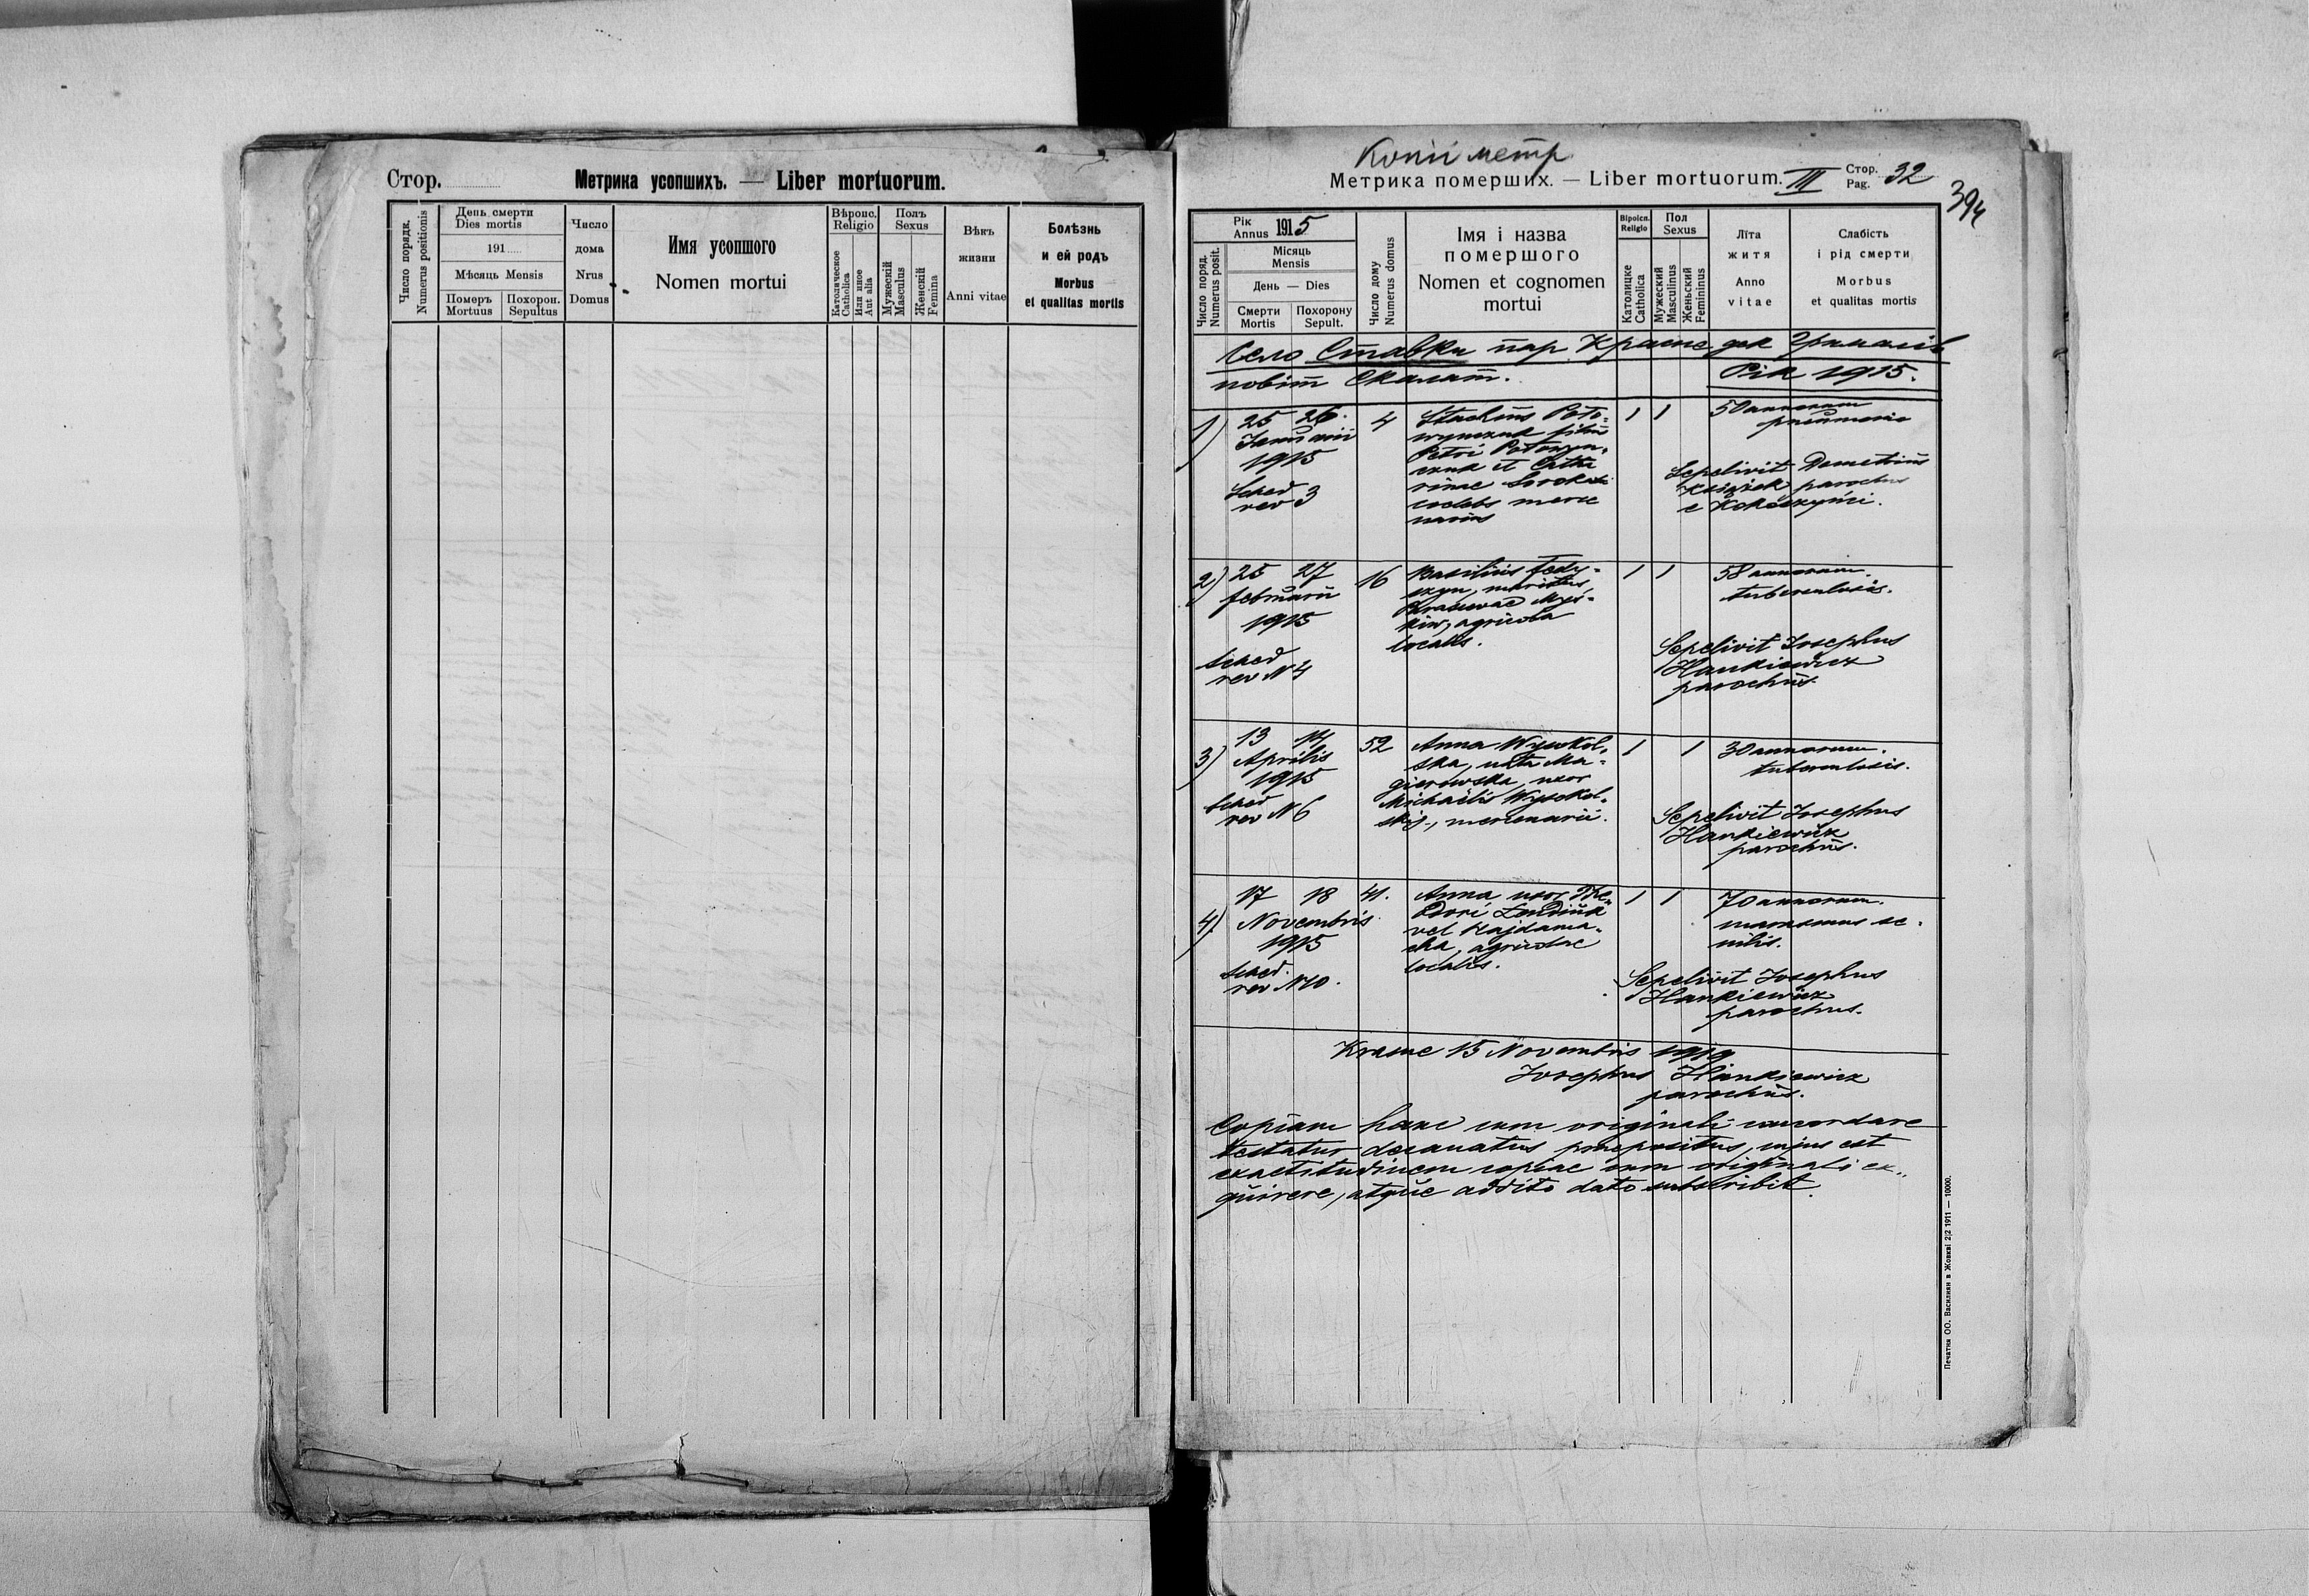 Стор.
Метрика усопшихъ. — Liber mortuorum.
Число порядк.
Numerus positionis
День смерти
Dies mortis
191
Мѣсяць Mensis
Померъ
Mortuus
Похорон.
Sepultus
Число
дома
Nrus
Domus
Имя усопшого
Nomen mortui
Вѣроис.
Religio
Католическое
Catholica
Или иное
Aut alia
Полъ
Sexus
Мужескій
Masculus
Женскій
Femina
Вѣкъ
жизни
Anni vitae
Болѣзнь
и ей родъ
Morbus
et qualitas mortis
Копії метр
Метрика померших. — Liber mortuorum. III
Стор.
Pag. 32
394
Число поряд.
Numerus posit.
Рік
Annus 1915
Місяць
Mensis
День — Dies
Смерти
Mortis
Похорону
Sepult.
Число дому
Numerus domus
Імя і назва
помершого
Nomen et cognomen
mortui
Віроісп.
Religio
Католицке
Catholica
Пол
Sexus
Мужеский
Masculinus
Женьский
Femininus
Літа
житя
Anno
vitae
Слабість
і рід смерти
Morbus
et qualitas mortis
Село Ставки пар Красне дек Грималів
повіт Скалат.
Рік 1915.
1) 25 26. 4 Eustachius Poto-
Januarii
1915
Sched
rev 3
filius
Petri
et Catha
rinae Soroka
coelebs merce
narius
1 1 50 annorum
pneumonia
Sepelivit Demetrius
Książek parochus
e Kokoszyńci.
2) 25 27 16 Basilius Fedy-
februarii
1915
Sched
rev N 4
szyn, maritus
Parascevae Myś-
kiw, agricola
localis.
1 1 58 annorum
tuberculosis.
Sepelivit Josephus
Hankiewicz
parochus.
3) 13 14 52 Anna Wysokol-
Aprilis
1915
Sched
rev N 6
ska, nata Ma-
gierowska, uxor
Michaelis Wysokol-
skij, mercenarii.
1 1 30 annorum.
tuberculosis.
Sepelivit Josephus
Hankiewicz
parochus.
4) 17 18 41. Anna uxor The-
Novembris
1915
Sched.
rev N 10.
odori
vel Hajdama-
cha, agricolae
localis.
1 1 70 annorum.
marasmus se-
nilis.
Sepelivit Josephus
Hankiewicz
parochus.
Krasne 15 Novembris 1919
Josephus Hankiewicz
parochus.
Copiam hanc cum originali concordare
testatur decanatus praepositus, cujus est
exactitudinem copiae cum originali ex-
quirere, atque addito dato subscribit.
Печатня ОО. Василиян в Жовкві 2|2 1911 — 10000.